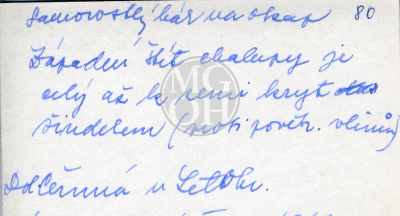 Samorostlý hák na okap 80
Západní štít chalupy je
celý až k zemi kryt
šindelem (proti povětr. vlivům)
Dol Čermná u Letohr.